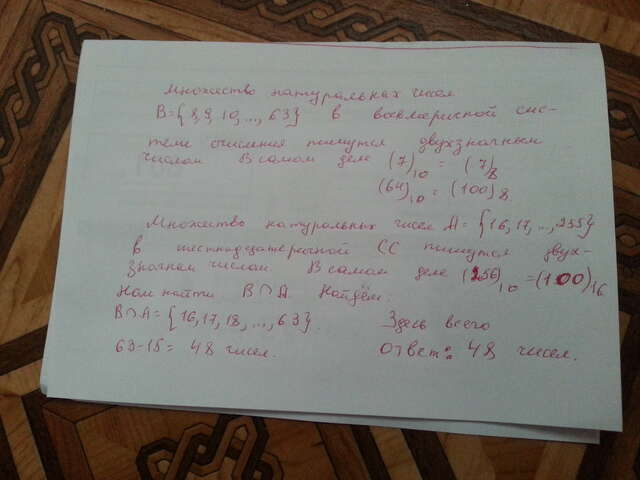 Множество натуральных чисел
B={8,9,10,...,63} в восьмеричной сис-
теме счисления пишутся двухзначным
числом В самом деле (7)₁₀ = (7)₈
(64)₁₀ = (100)₈
Множество натуральных чисел A={16,17,...,255}
в шестнадцатеричной СС пишутся двух-
значным числом В самом деле (256)₁₀=(100)₁₆
Нам найти B∩A. Найдём.
B∩A={16,17,18,...,63}. Здесь всего
63-15= 48 чисел. Ответ: 48 чисел.